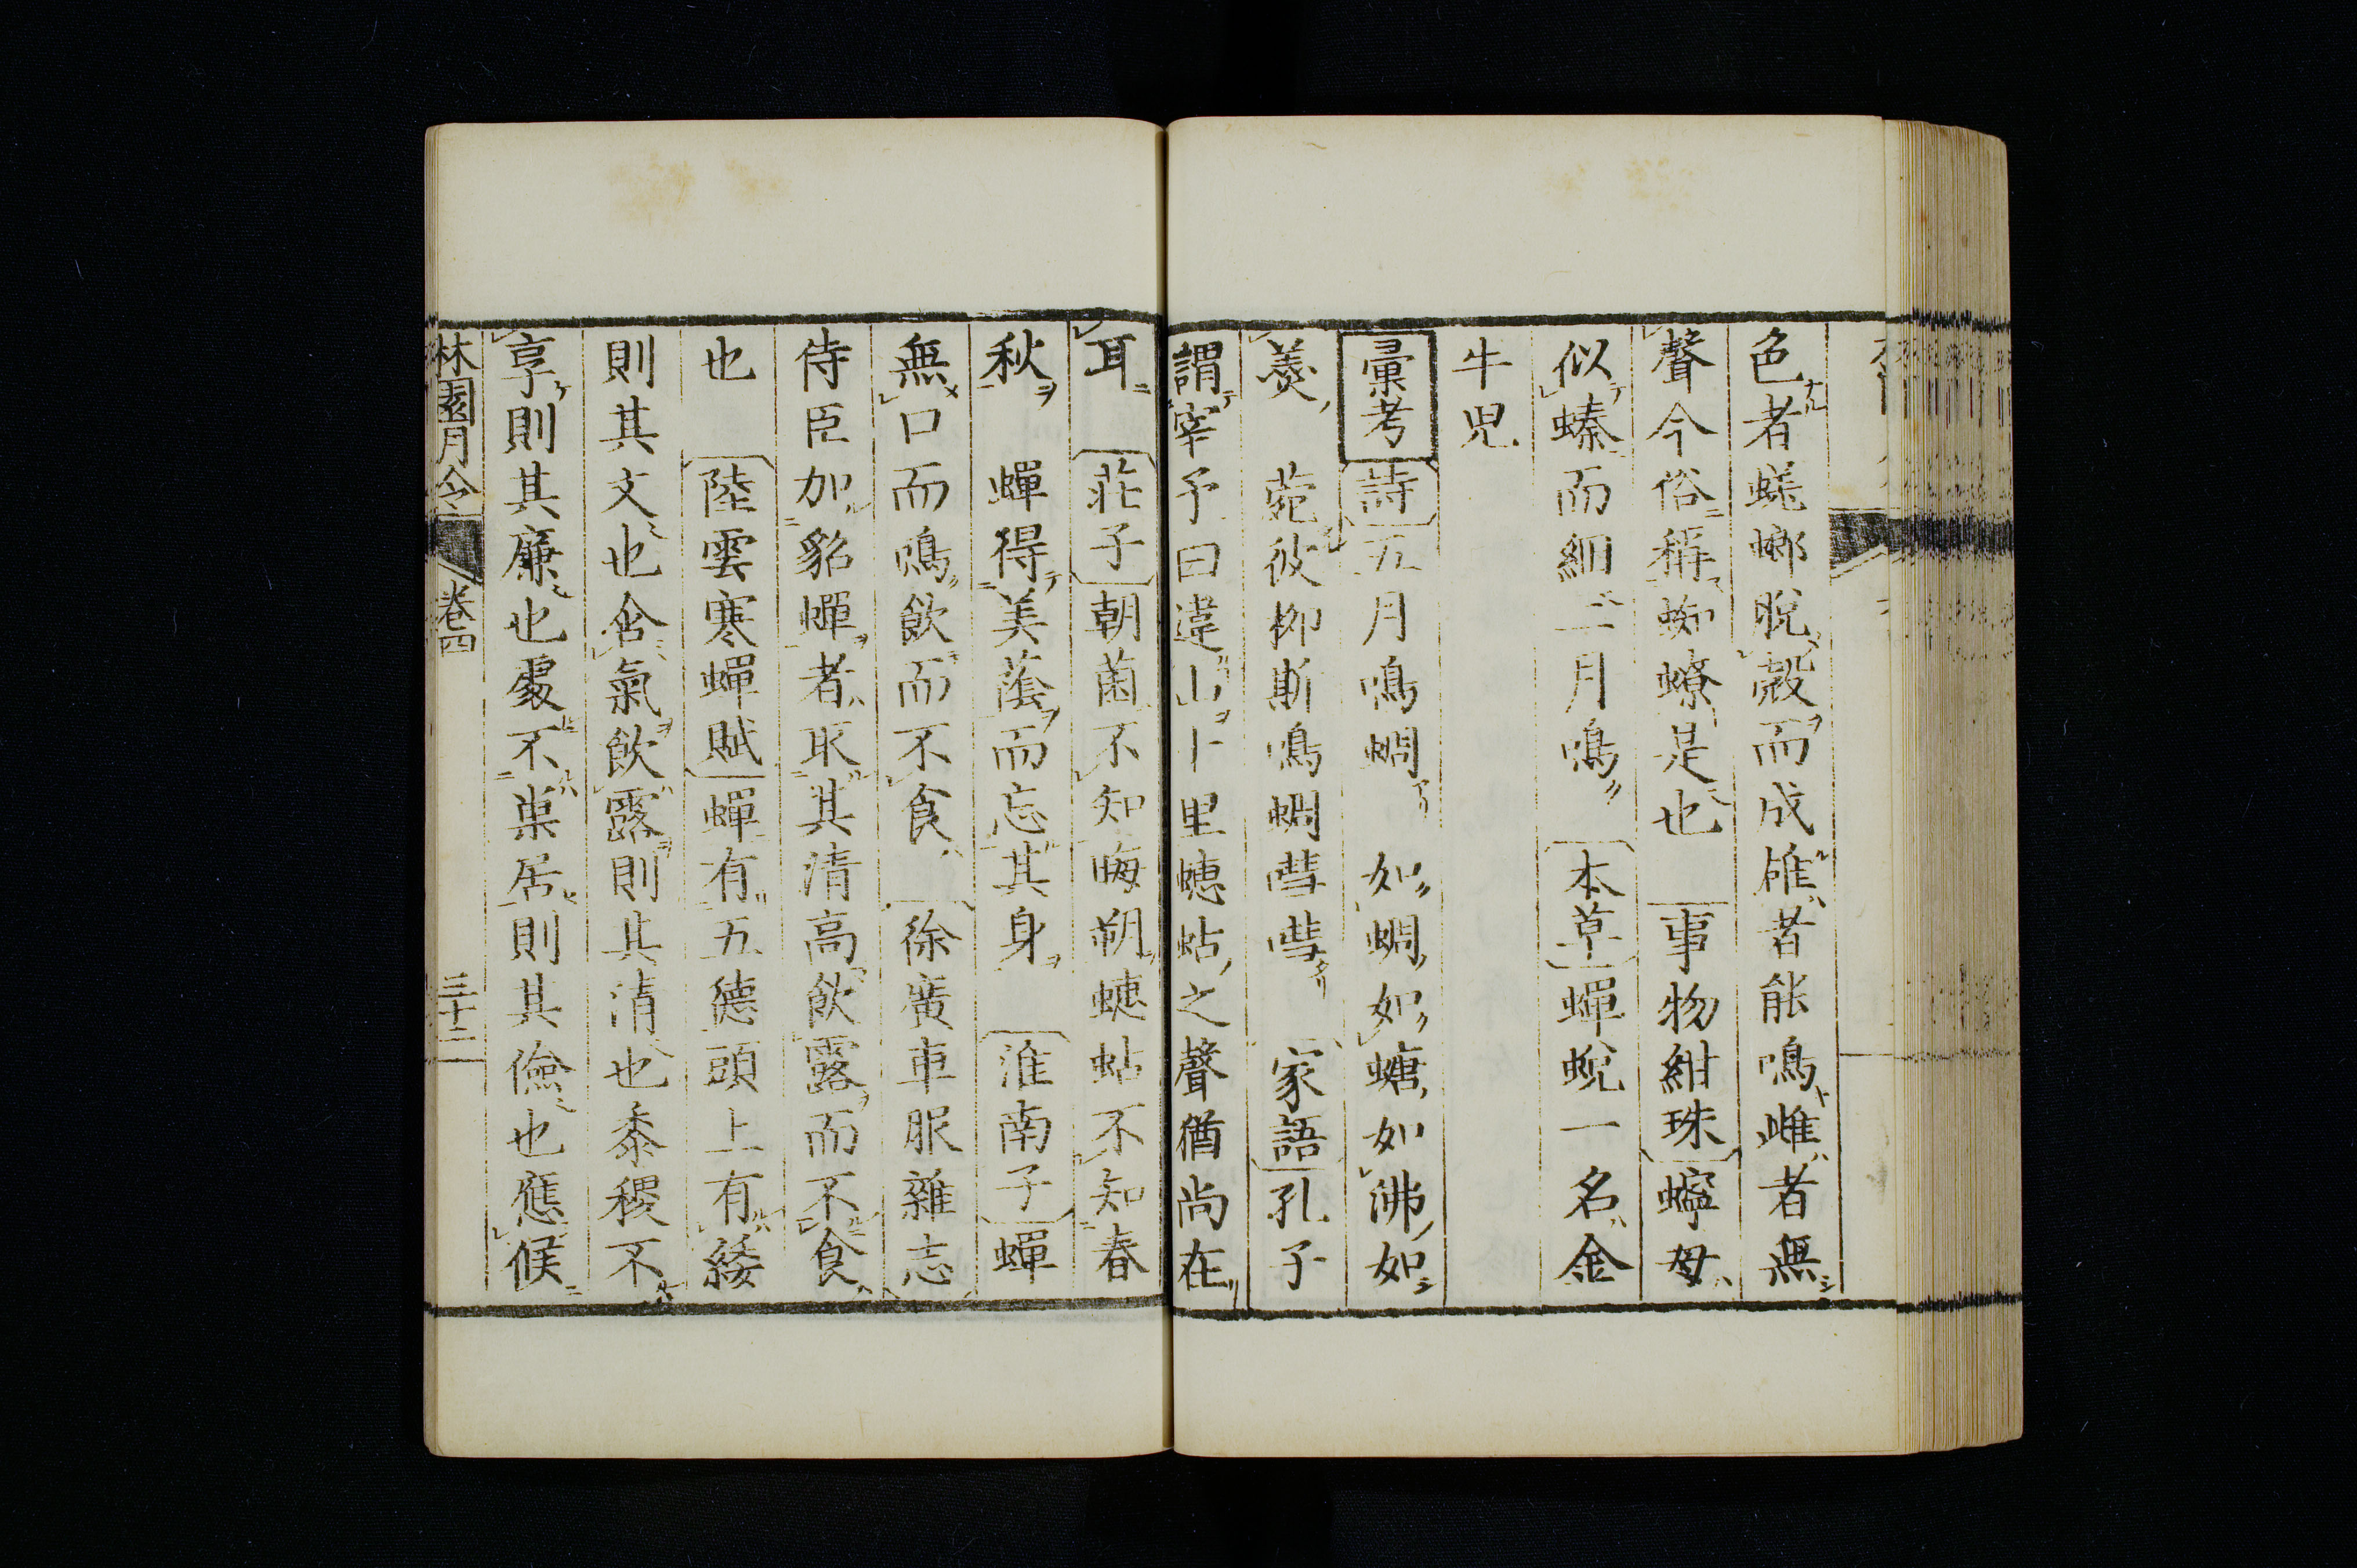 色者蜣蜋脫殻而成雄者能鳴雌者無
聲今俗稱蜘蟟是也 事物紺珠蠽母
似螓而細二月鳴 本草蟬蛻一名金
牛児
彙考 詩五月鳴蜩 如蜩如螗如沸如
羹 菀彼柳斯鳴蜩嘒嘒 家語孔子
謂宰予曰違山十里蟪蛄之聲猶尚在
耳 莊子朝菌不知晦朔蟪蛄不知春
秋 蟬得美蔭而忘其身 淮南子蟬
無口而鳴飲而不食 徐廣車服雜志
侍臣加貂蟬者取其清高飲露而不食
也 陸雲寒蟬賦蟬有五德頭上有緌
則其文也含氣飲露則其清也黍稷不
享則其廉也處不巢居則其儉也應候
林園月令 卷四 三十二